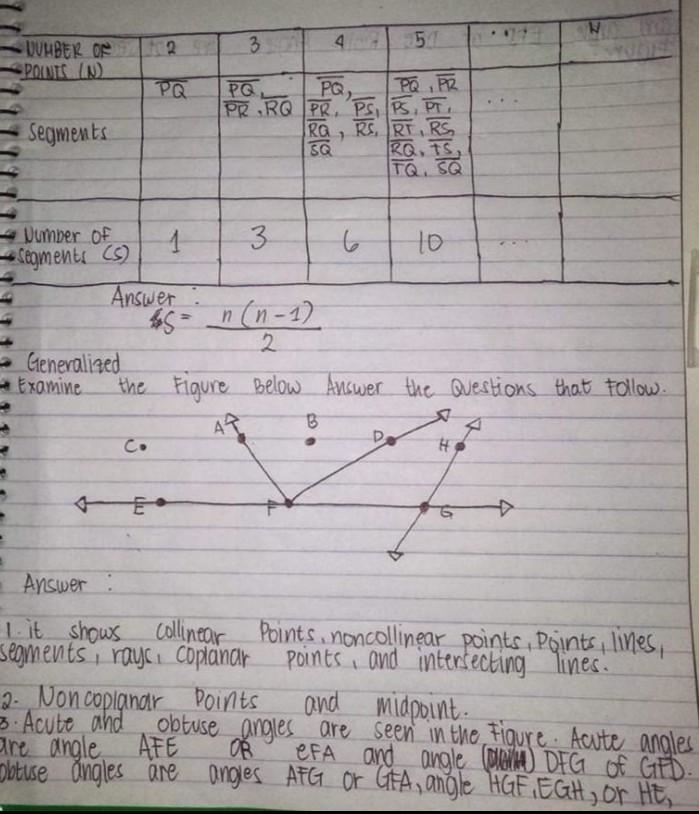 NUMBER OF POINTS (N) 2 3 4 5 ... N
Segments
PQ
PQ,
PR, RQ
PQ,
PR, PS,
RQ, RS,
SQ
PQ, PR
PS, PT,
RT, RS,
RQ, TS,
TQ, SQ
...
Number of Segments (S) 1 3 6 10 ...
Answer :
S = n(n-1)
2
Generalized
Examine the Figure Below Answer the Questions that Follow.
A B D H
C
E F G
Answer :
1. it shows Collinear Points, noncollinear points, Points, lines,
segments, rays, coplanar points, and intersecting lines.
2. Noncoplanar Points and midpoint.
3. Acute and obtuse angles are seen in the Figure. Acute angles
are angle AFE OR EFA and angle DFG of GFD.
obtuse angles are angles AFG or GFA, angle HGF, EGH, or HE,